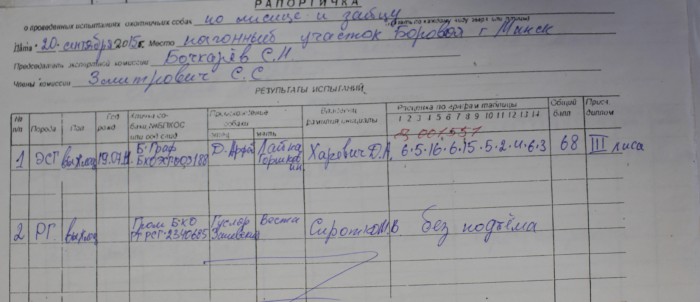 РАПОРТИЧКА
о проведенных испытаниях охотничьих собак по лисице и зайцу
Дата 20 сентября 2015г. Место нагонный участок Боровая г. Минск
Председатель экспертной комиссии Бочкарёв С.Н
Члены комиссии Змитрович С.С
РЕЗУЛЬТАТЫ ИСПЫТАНИЙ
№ п/п Порода Пол Год рожд Кличка со-баки, №ВПКОС или род след Происхождение собаки отец мать Владелец фамилия инициалы Расценка по графам таблицы 1 2 3 4 5 6 7 8 9 10 11 12 13 14 Общий балл Присв. диплом
1 ЭСГ выжлец Б. Граф Д. Арфа Лайна Харович Д.А. 6·5·16·6·15·5·2·4·6·3 68 III лиса
2 РГ выжлец Гром БКО Гусляр Васта Сиротко М.В без подъёма